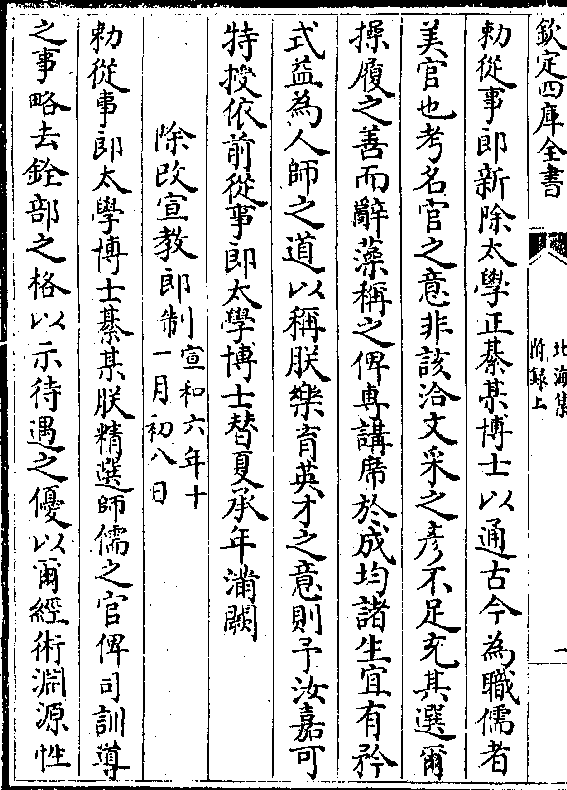 欽定四庫全書
北海集
附録上
勅從事郎新除太學正綦某博士以通古今為職儒者
美官也考名官之意非該洽文采之彦不足充其選爾
操履之善而辭藻稱之俾專講席於成均諸生宜有矜
式益為人師之道以稱朕樂育英才之意則予汝嘉可
特授依前從事郎太學博士替夏承年滿闕
除改宣教郎制宣和六年十
一月初八日
勅從事郎太學博士綦某朕精選師儒之官俾司訓導
之事略去銓部之格以示待遇之優以爾經術淵源性